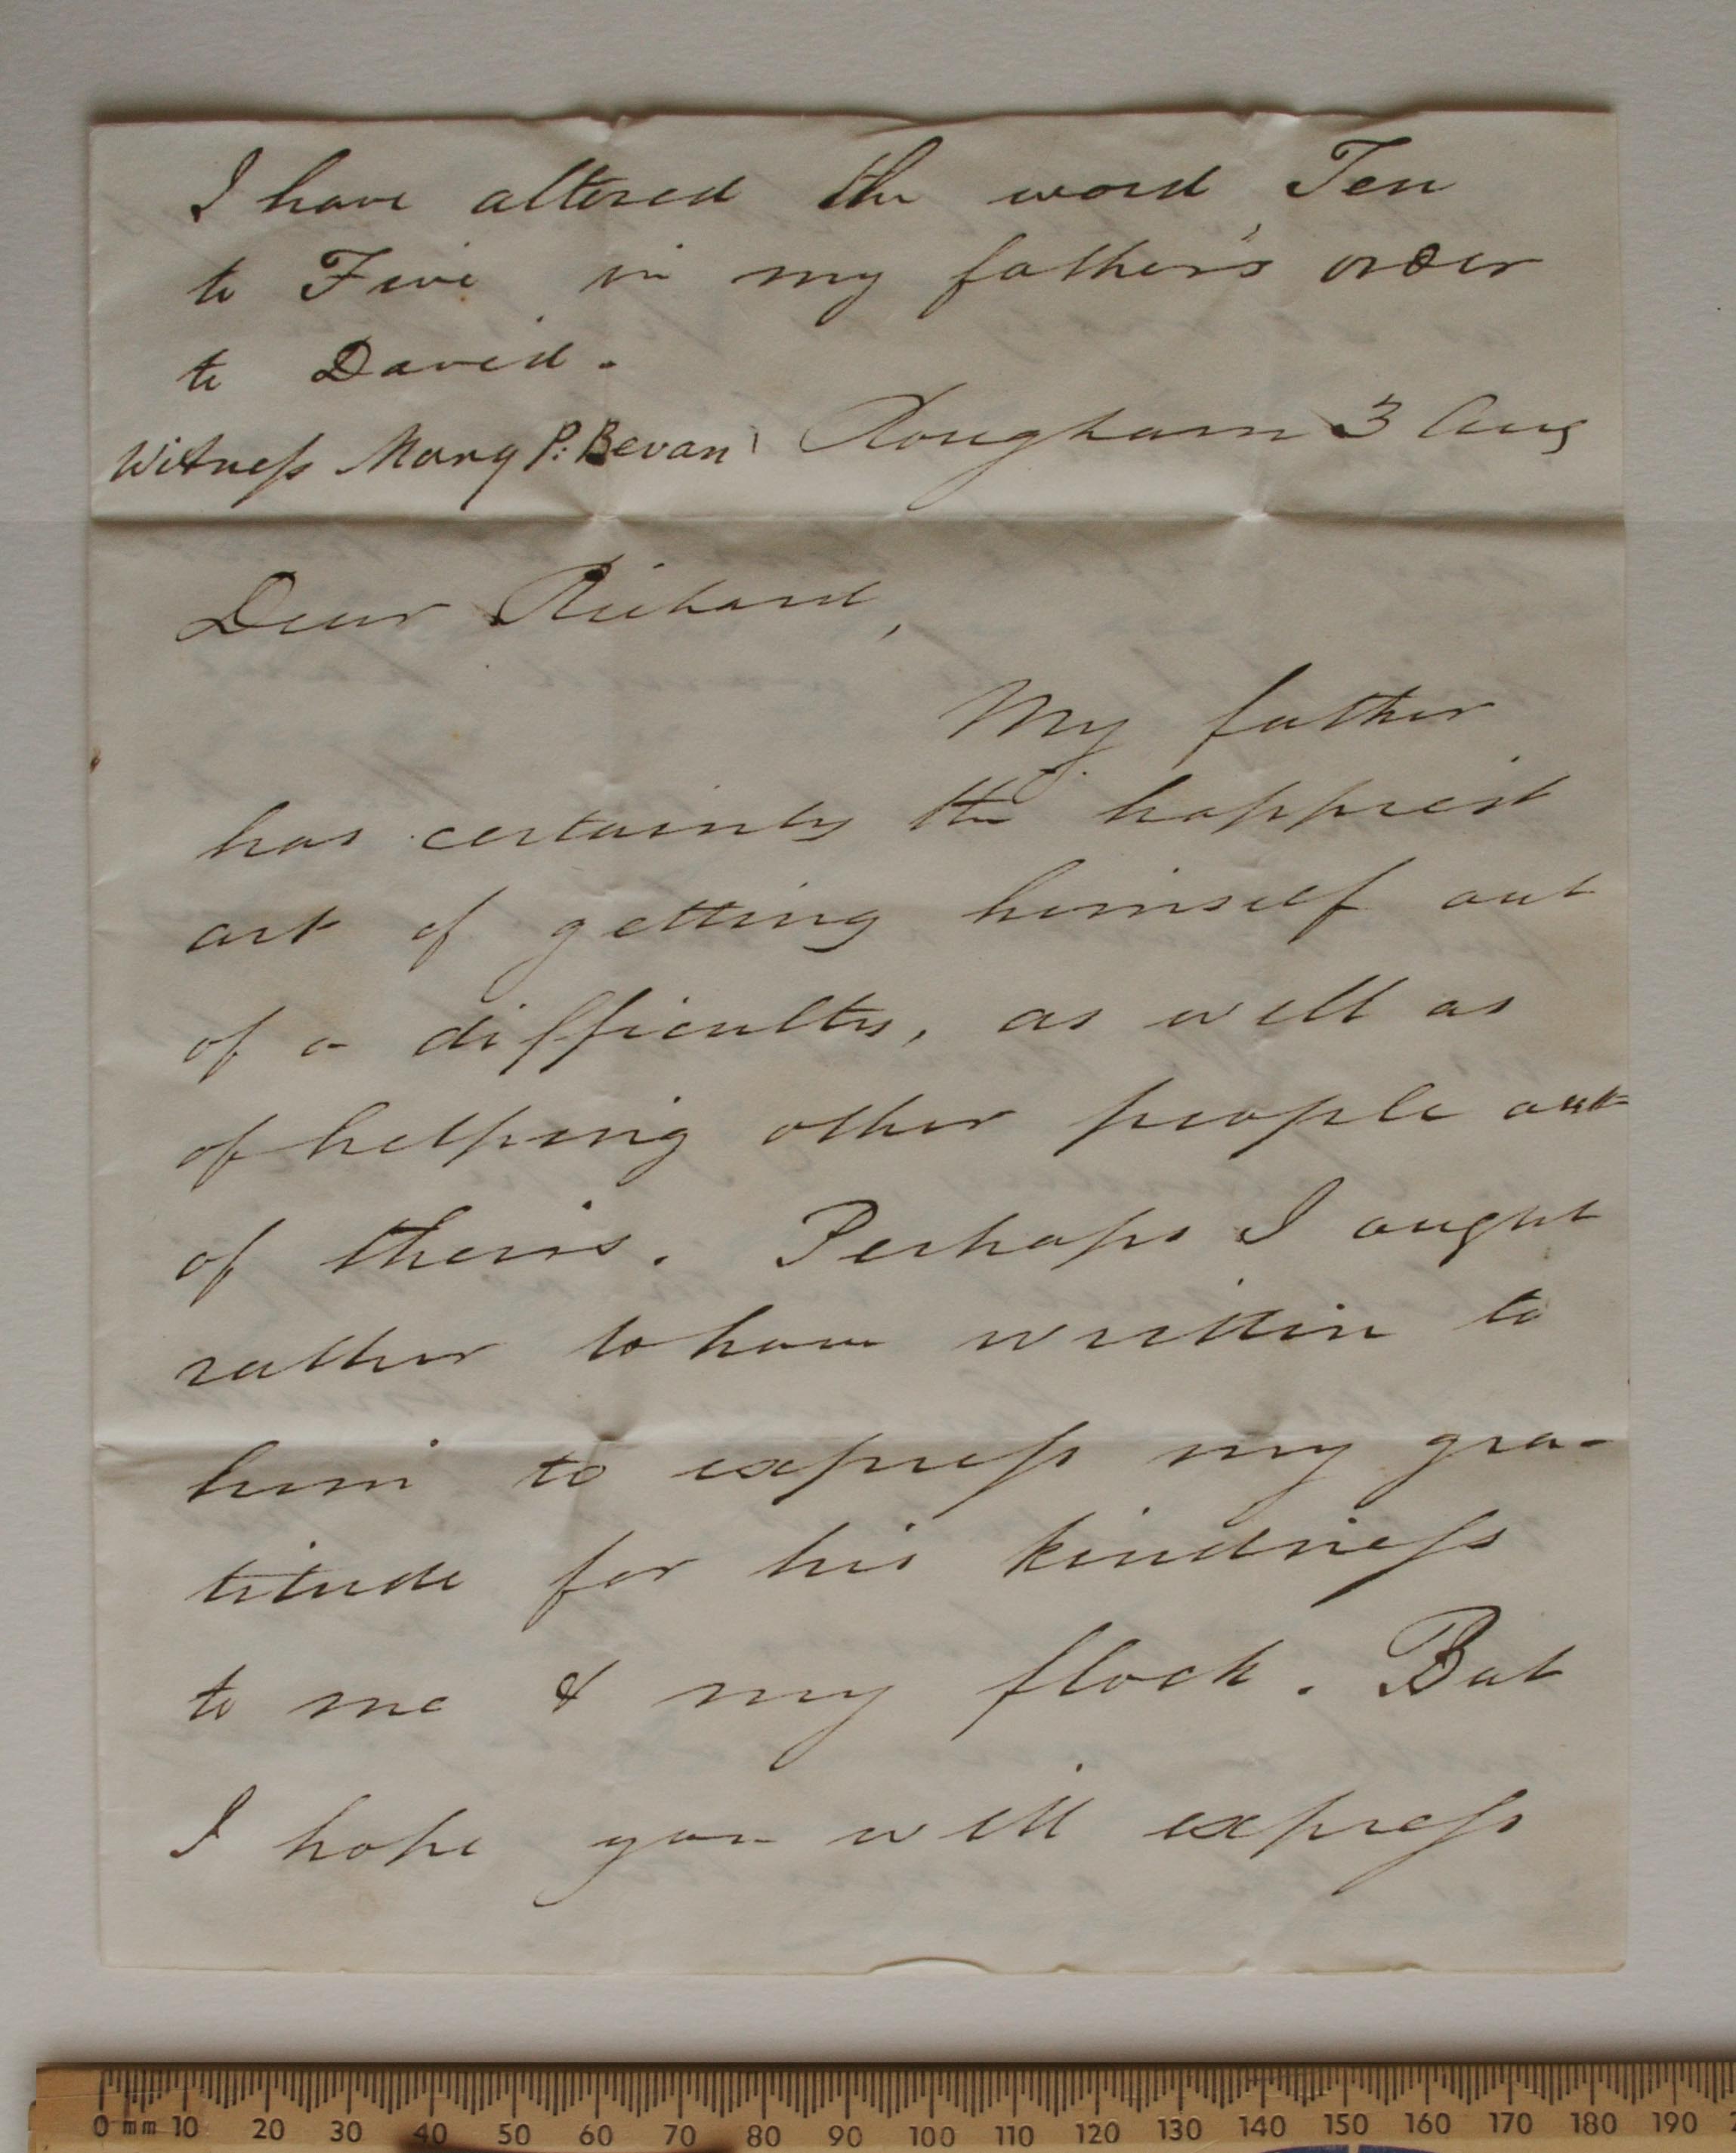 I have altered the word Ten
to Five in my father's order
to David.
Witness Mary P. Bevan Rougham 3 Aug
Dear Richard,
My father
has certainly the happiest
art of getting himself out
of a difficulty, as well as
of helping other people out
of theirs. Perhaps I ought
rather to have written to
him to express my gra-
titude for his kindness
to me & my flock. But
I hope you will express
0 mm 10 20 30 40 50 60 70 80 90 100 110 120 130 140 150 160 170 180 190